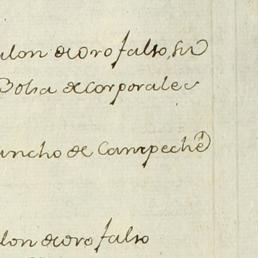 alon de oro falso, su
Bolsa de corporales
ancho de Campeche
alon de oro falso